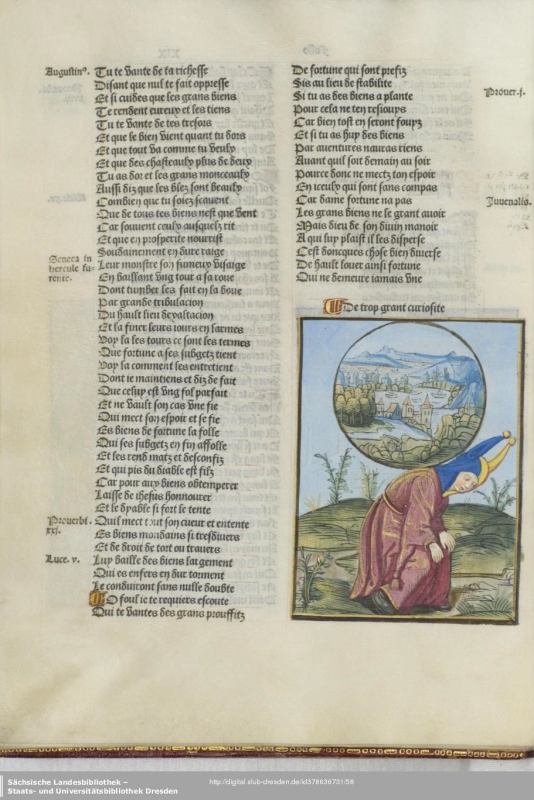 Augustin⁹.
Tu te vante de ta richesse
Disant que nul te fait oppresse
Et si cuides que les grans biens
Te rendent eureux et les tiens
Tu te vante de tes tresors
Et que le bien vient quant tu dors
Et que tout va comme tu veulx
Et que des chasteaulx plus de deux
Tu as dor et les grans monceaulx
Aussi diz que les blez sont beaulx
Combien que tu soiez scauent
Que de tous tes biens nest que vent
Car souuent ceulx ausquelz rit
Et que en prosperite nourrist
Seneca in
hercule fu-
rente.
Soudainement en dure raige
Leur monstre son furieux visaige
En baillant vng tour a sa roue
Dont tumber les fait en la boue
Par grande tribulacion
Du hault lieu dexaltacion
Et la finer leurs iours en larmes
Voy la les tours ce sont les termes
Que fortune a ses subgetz tient
Voy la comment les entretient
Dont te maintiens et diz de fait
Que cestuy est vng fol parfait
Et ne vault son cas vne fie
Qui mect son espoir et se fie
Es biens de fortune la folle
Qui ses subgetz en fin affolle
Et les rend matz et desconfiz
Et qui pis du diable est filz
Car pour aux biens obtemperer
Laisse de ihesus honnourer
Et le dyable si fort le tente
Prouerbi.
xxj.
Quil mect tout son cueur et entente
Es biens mondains si tresdiuers
Et de droit de tort ou trauers
Luce. v.
Luy baille des biens largement
Qui es enfers en dur torment
Le conduiront sans nulle doubte
O foul ie te requiers escoute
Qui te vantes des grans prouffitz
De fortune qui sont prefiz
Sis au lieu de stabilite
Si tu as des biens a plante
Prouer. j.
Pour cela ne ten resiouys
Car bien tost en seront fouyz
Et si tu as huy des biens
Par auentures nauras riens
Auant quil soit demain au soir
Pource donc ne mectz ton espoir
En iceulx qui sont sans compas
Car dame fortune na pas
Juuenalis.
Les grans biens ne le grant auoir
Mais dieu de son diuin manoir
A qui luy plaist il les disperse
Cest doncques chose bien diuerse
De hault louer ainsi fortune
Qui ne demeure iamais vne
De trop grant curiosite
Sächsische Landesbibliothek –
Staats- und Universitätsbibliothek Dresden
http://digital.slub-dresden.de/id378636731/58